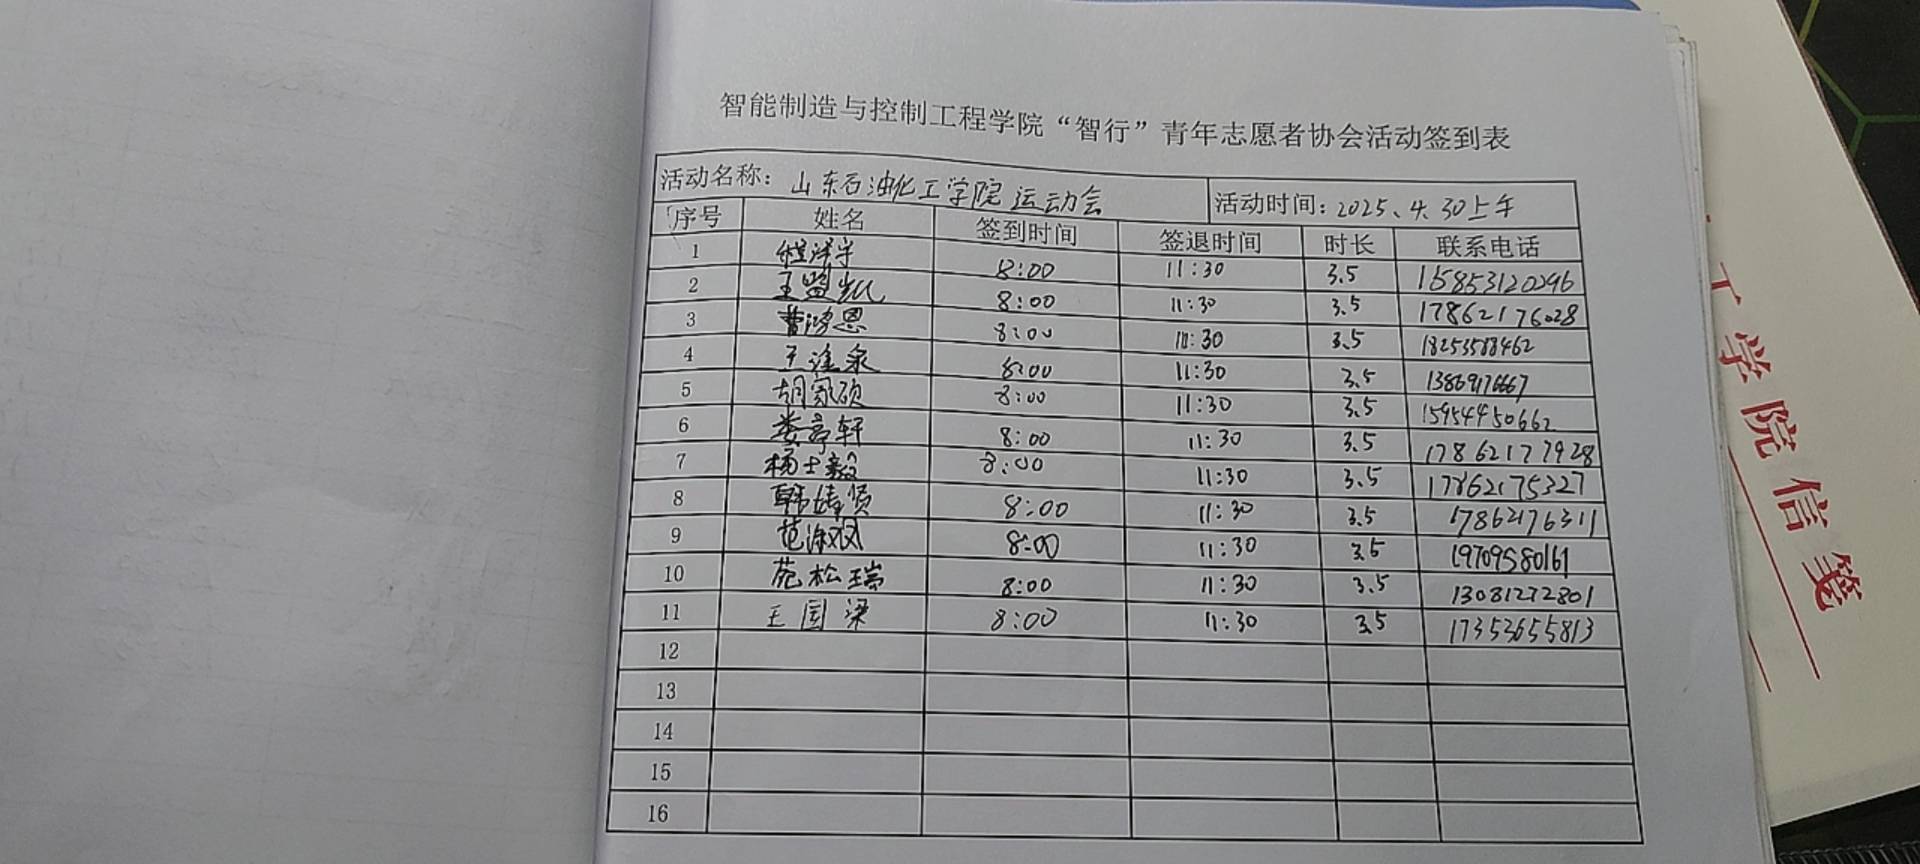 智能制造与控制工程学院“智行”青年志愿者协会活动签到表
活动名称：山东石油化工学院运动会 活动时间：2025、4.30上午
序号 姓名 签到时间 签退时间 时长 联系电话
1 程洋宇 8:00 11:30 3.5 15853120296
2 王盟凯 8:00 11:30 3.5 17862176028
3 曹鸿恩 8:00 11:30 3.5 18253588462
4 王淮泉 8:00 11:30 3.5 13869176667
5 胡家硕 8:00 11:30 3.5 15954450662
6 娄亭轩 8:00 11:30 3.5 17862177928
7 杨士毅 8:00 11:30 3.5 17862175327
8 韩靖贤 8:00 11:30 3.5 17862176311
9 范淑凤 8:00 11:30 3.5 19709580161
10 苑松瑞 8:00 11:30 3.5 13081272801
11 王国梁 8:00 11:30 3.5 17353655813
12
13
14
15
16
工学院信笺